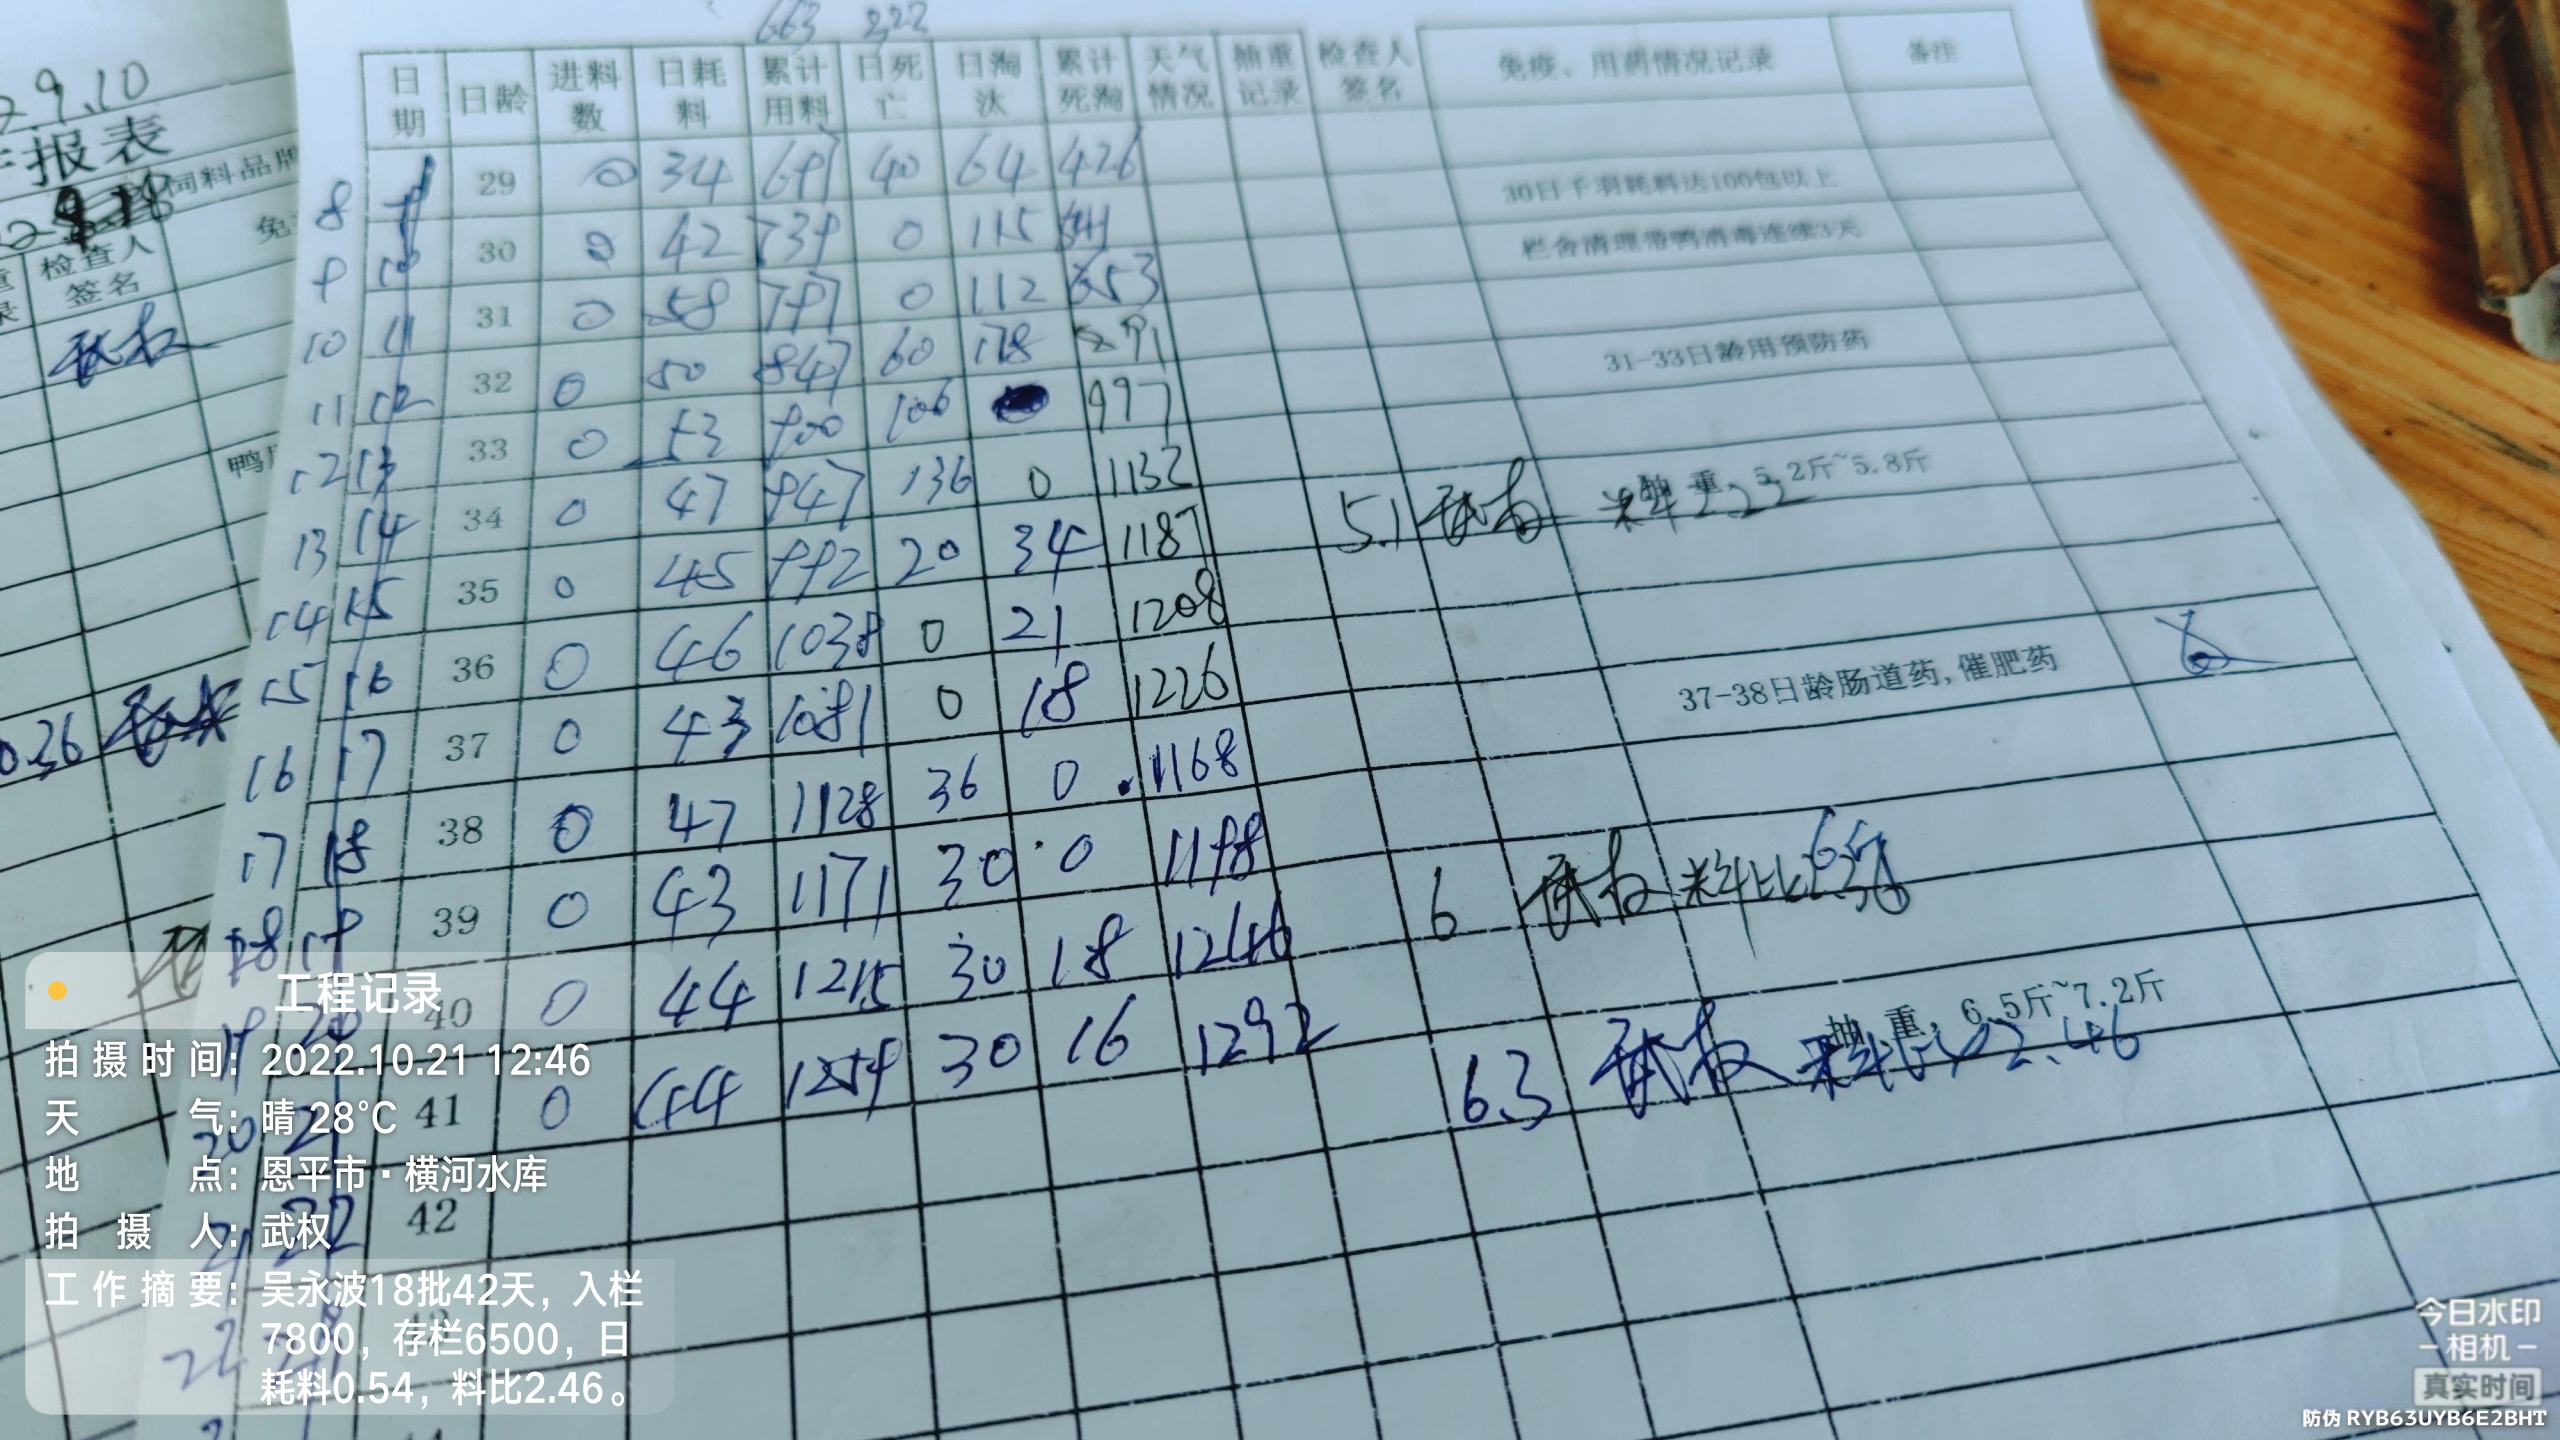 663 222
2.9.10
报表
饲料品牌
检查人
签名
0.36
日期 日龄 进料数 日耗料 累计用料 日死亡 日淘汰 累计死淘 天气情况 抽重记录 检查人签名 免疫、用药情况记录 备注
8 29 0 34 697 40 64 426
30日千羽耗料达100包以上
9 10 30 0 42 739 0 115 541
栏舍清理带鸭消毒连续3天
10 11 31 0 58 797 0 112 653
11 12 32 0 50 847 60 178 891
31-33日龄用预防药
12 13 33 0 53 900 106 997
13 14 34 0 47 947 136 0 1132
抽重:5.2斤~5.8斤
5.1 武权
14 15 35 0 45 992 20 34 1187
15 16 36 0 46 1038 0 21 1208
16 17 37 0 43 1081 0 18 1226
37-38日龄肠道药,催肥药
17 18 38 0 47 1128 36 0 1168
18 19 39 0 43 1171 30 0 1198
6 武权 料比
19 20 40 0 44 1215 30 18 1246
抽重:6.5斤~7.2斤
20 21 41 0 44 1259 30 16 1292
6.3 武权 料比 2.46
21 22 42
工程记录
拍摄时间:2022.10.21 12:46
天气:晴 28℃
地点:恩平市·横河水库
拍摄人:武权
工作摘要:吴永波18批42天,入栏
7800,存栏6500,日
耗料0.54,料比2.46。
今日水印
-相机-
真实时间
防伪 RYB63UYB6E2BHT